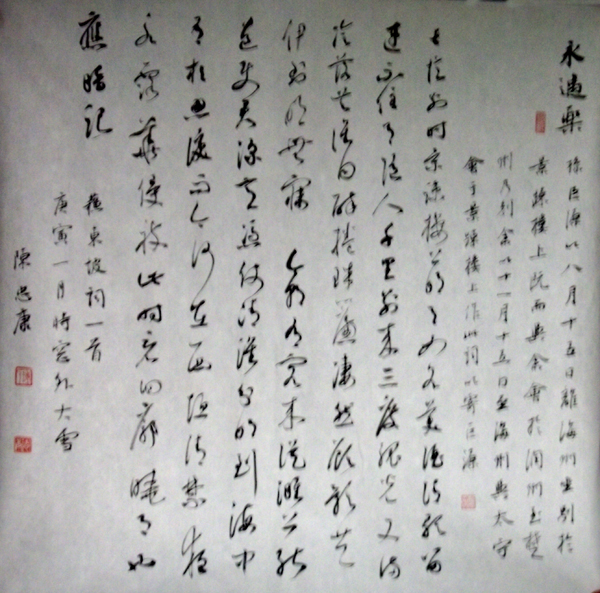 永遇樂 孫巨源以八月十五日離海州坐別於
景疏樓上既而與余會於潤州至楚
州乃別余以十一月十五日至海州與太守
會于景疏樓上作此詞以寄巨源
長憶別時景疏樓上明月如水美酒清歌留
連不住月隨人千里別來三度孤光又滿
冷落共誰同醉捲珠簾淒然顧影共
伊到明無寐 今朝有客來從濉上能
道使君深意憑仗清淮分明到海中
有相思淚而今何在西垣清禁夜
永露華侵被此時看回廊曉月也
應暗記
蘇東坡詞一首
庚寅一月時窗外大雪
陳忠康